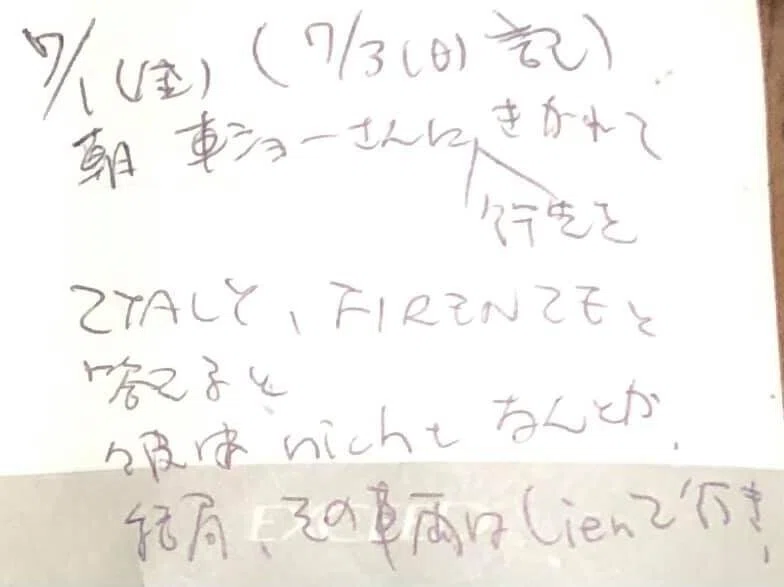 7/1(金) (7/3(日)記)
朝 車ショーさんに きかれて
行先を
ITALY、FIRENZEと
答えると
彼は nicht なんとか、
結局、その車両は Lienzで行き、